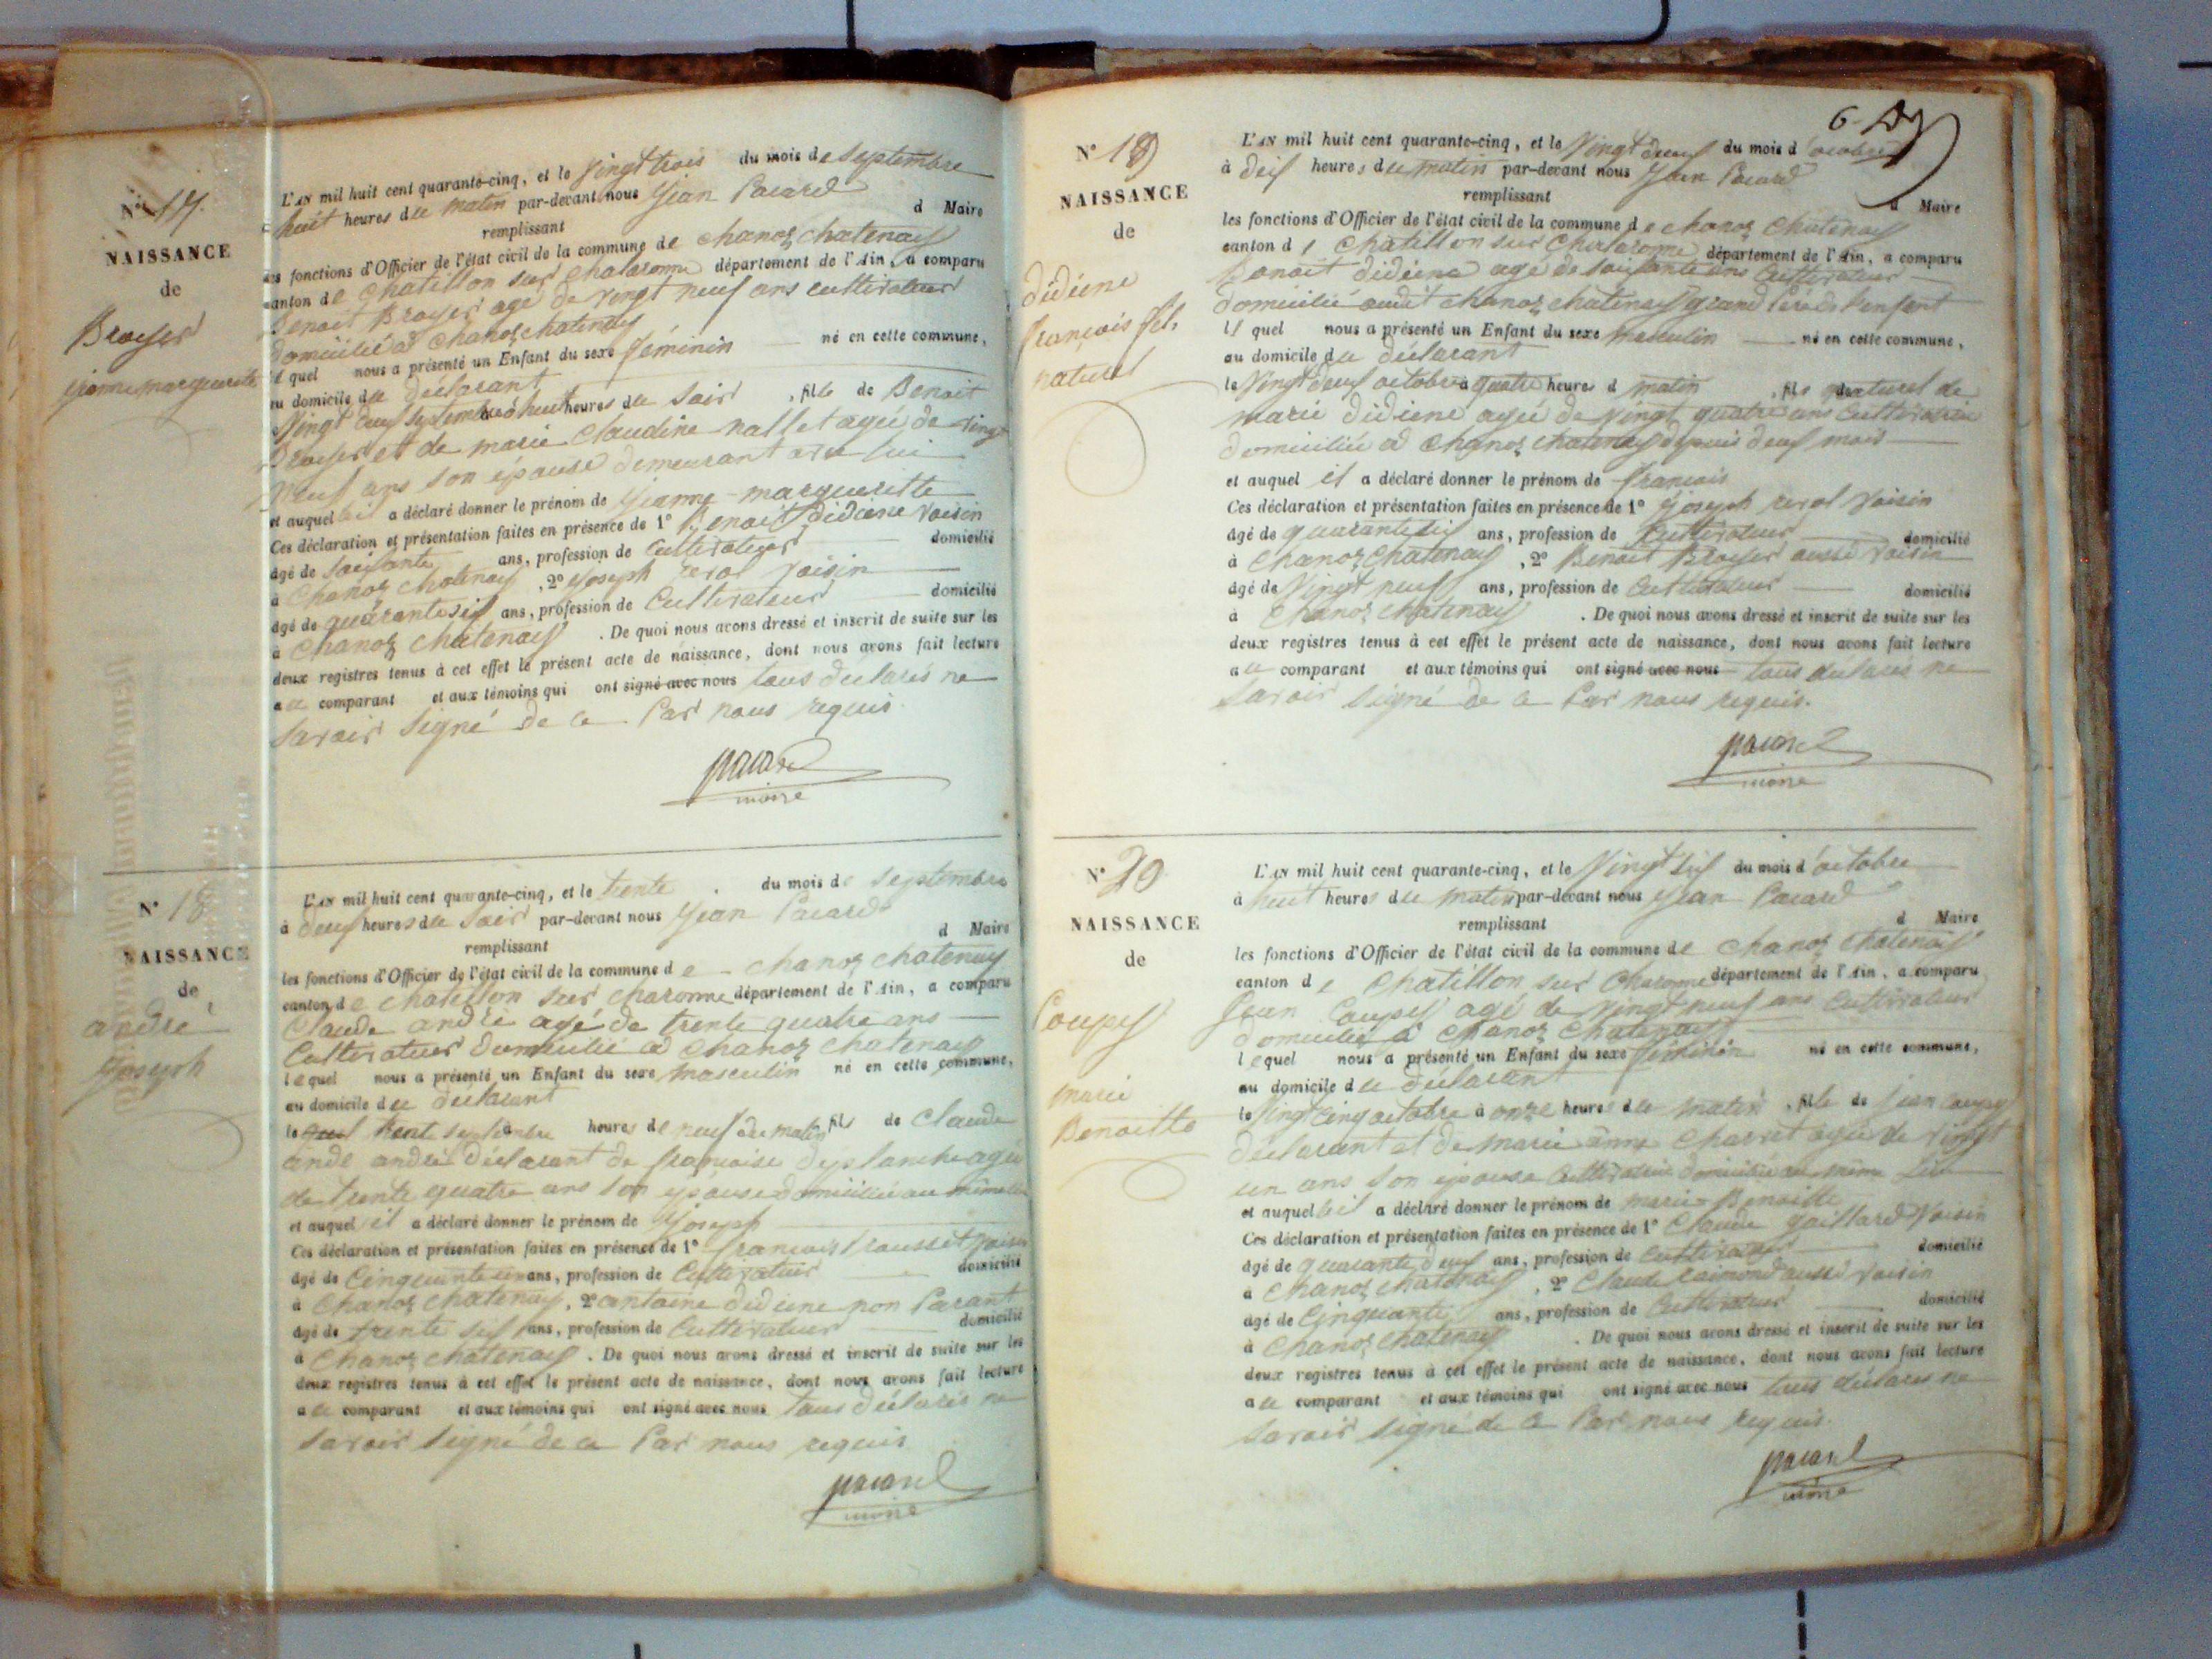 N° 17.
NAISSANCE
de
Broyer
Jeanne marguerite
L'AN mil huit cent quarante-cinq, et le Vingt trois du mois de septembre
huit heures du matin par-devant nous Jean Pacard
remplissant d Maire
les fonctions d'Officier de l'état civil de la commune de chanoz chatenay
canton de Chatillon sur Chalaronne département de l'Ain, a comparu
Benoit Broyer agé de vingt neuf ans cultivateur
domicilié à Chanoz chatenay
lequel nous a présenté un Enfant du sexe féminin né en cette commune,
au domicile du déclarant
Vingt deux septembre à huit heures du soir, fille de Benoit
Broyer et de marie Claudine nallet agée de vingt
neuf ans son épouse demeurant avec lui
et auquel il a déclaré donner le prénom de Jeanne-marguerite
Ces déclaration et présentation faites en présence de 1° Benoit didiene voisin
âgé de soixante ans, profession de Cultivateur domicilié
à Chanoz chatenay, 2° Joseph reval voisin
âgé de quarante six ans, profession de Cultivateur domicilié
à Chanoz chatenay. De quoi nous avons dressé et inscrit de suite sur les
deux registres tenus à cet effet le présent acte de naissance, dont nous avons fait lecture
au comparant et aux témoins qui ont signé avec nous tous déclarés ne
savoir signé de ce Par nous requis.
pacard
maire
N° 18
NAISSANCE
de
andré
Joseph
L'AN mil huit cent quarante-cinq, et le trente du mois de septembre
à deux heures du soir par-devant nous Jean Pacard
remplissant d Maire
les fonctions d'Officier de l'état civil de la commune de chanoz chatenay
canton de chatillon sur charonne département de l'Ain, a comparu
Claude andré agé de trente quatre ans
Cultivateur domicilié à Chanoz chatenay
lequel nous a présenté un Enfant du sexe masculin né en cette commune,
au domicile du déclarant
le trente septembre à heures de neuf du matin fils de Claude
andré déclarant de françoise desplanche agée
de trente quatre ans son épouse domiciliée au même lieu
et auquel il a déclaré donner le prénom de Joseph
Ces déclaration et présentation faites en présence de 1° françois trousset voisin
âgé de Cinquante un ans, profession de Cultivateur domicilié
à Chanoz chatenay, 2° antoine didiene non Parant
âgé de trente six ans, profession de Cultivateur domicilié
à Chanoz chatenay. De quoi nous avons dressé et inscrit de suite sur les
deux registres tenus à cet effet le présent acte de naissance, dont nous avons fait lecture
au comparant et aux témoins qui ont signé avec nous tous déclarés ne
savoir signé de ce Par nous requis
pacard
maire
N° 19
NAISSANCE
de
didiene
François fils
naturel
L'AN mil huit cent quarante-cinq, et le Vingt deux du mois d'octobre
à dix heures du matin par-devant nous Jean Pacard
remplissant d Maire
les fonctions d'Officier de l'état civil de la commune de chanoz Chatenay
canton de Chatillon sur Chalaronne département de l'Ain, a comparu
Benoit didiene agé de soixante ans Cultivateur
domicilié audit chanoz chatenay grand Père de l'enfant
lequel nous a présenté un Enfant du sexe masculin né en cette commune,
au domicile du déclarant
le Vingt deux octobre à quatre heures d matin, fils naturel de
marie didiene agée de vingt quatre ans Cultivatrice
domiciliée à Chanoz chatenay depuis deux mois
et auquel il a déclaré donner le prénom de françois
Ces déclaration et présentation faites en présence de 1° Joseph reval voisin
âgé de quarante six ans, profession de Cultivateur domicilié
à Chanoz chatenay, 2° Benoit Broyer aussi voisin
âgé de Vingt neuf ans, profession de Cultivateur domicilié
à Chanoz chatenay. De quoi nous avons dressé et inscrit de suite sur les
deux registres tenus à cet effet le présent acte de naissance, dont nous avons fait lecture
au comparant et aux témoins qui ont signé avec nous tous déclarés ne
savoir signé de ce Par nous requis.
pacard
maire
N° 20
NAISSANCE
de
Coupy
marie
Benoitte
L'AN mil huit cent quarante-cinq, et le Vingt six du mois d'octobre
à huit heures du matin par-devant nous Jean Pacard
remplissant d Maire
les fonctions d'Officier de l'état civil de la commune de Chanoz Chatenay
canton de Chatillon sur Charonne département de l'Ain, a comparu
Jean Coupy agé de vingt neuf ans Cultivateur
domicilié à Chanoz Chatenay
lequel nous a présenté un Enfant du sexe féminin né en cette commune,
au domicile du déclarant
le Vingt cinq octobre à onze heures du matin, fille de Jean Coupy
déclarant et de marie anne Charvet agée de vingt
un ans son épouse Cultivatrice domiciliée au même lieu
et auquel il a déclaré donner le prénom de marie Benoitte
Ces déclaration et présentation faites en présence de 1° Claude gaillard voisin
âgé de quarante deux ans, profession de Cultivateur domicilié
à Chanoz chatenay, 2° Claude raimond aussi voisin
âgé de Cinquante ans, profession de Cultivateur domicilié
à Chanoz chatenay. De quoi nous avons dressé et inscrit de suite sur les
deux registres tenus à cet effet le présent acte de naissance, dont nous avons fait lecture
au comparant et aux témoins qui ont signé avec nous tous déclarés ne
savoir signé de ce Par nous requis.
pacard
maire